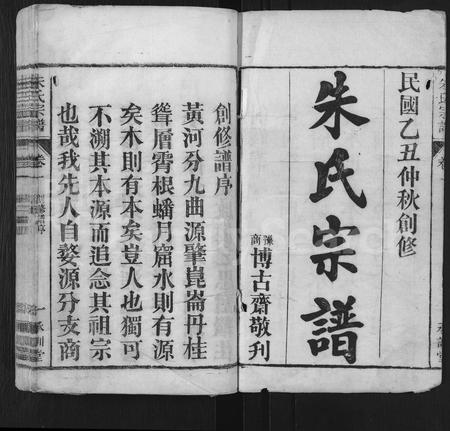 民國乙丑仲秋創修
朱氏宗譜
豫商博古齋敬刊
創修譜序
黃河分九曲源肇崑崙丹桂
聳層霄根蟠月窟水則有源
矣木則有本矣豈人也獨可
不溯其本源而追念其祖宗
也哉我先人自婺源分支商
朱氏宗譜
卷
創修譜序
一